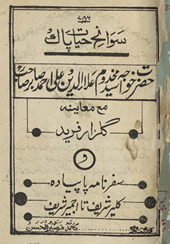 ۷۸۶
سوانح حیات پاک
حضرت خواجہ سید مخدوم علاؤ الدین علی احمد صابر صاحب
مع معاینہ
گلزار فرید
و
سفرنامہ پاپیادہ
کلیر شریف تا اجمیر شریف